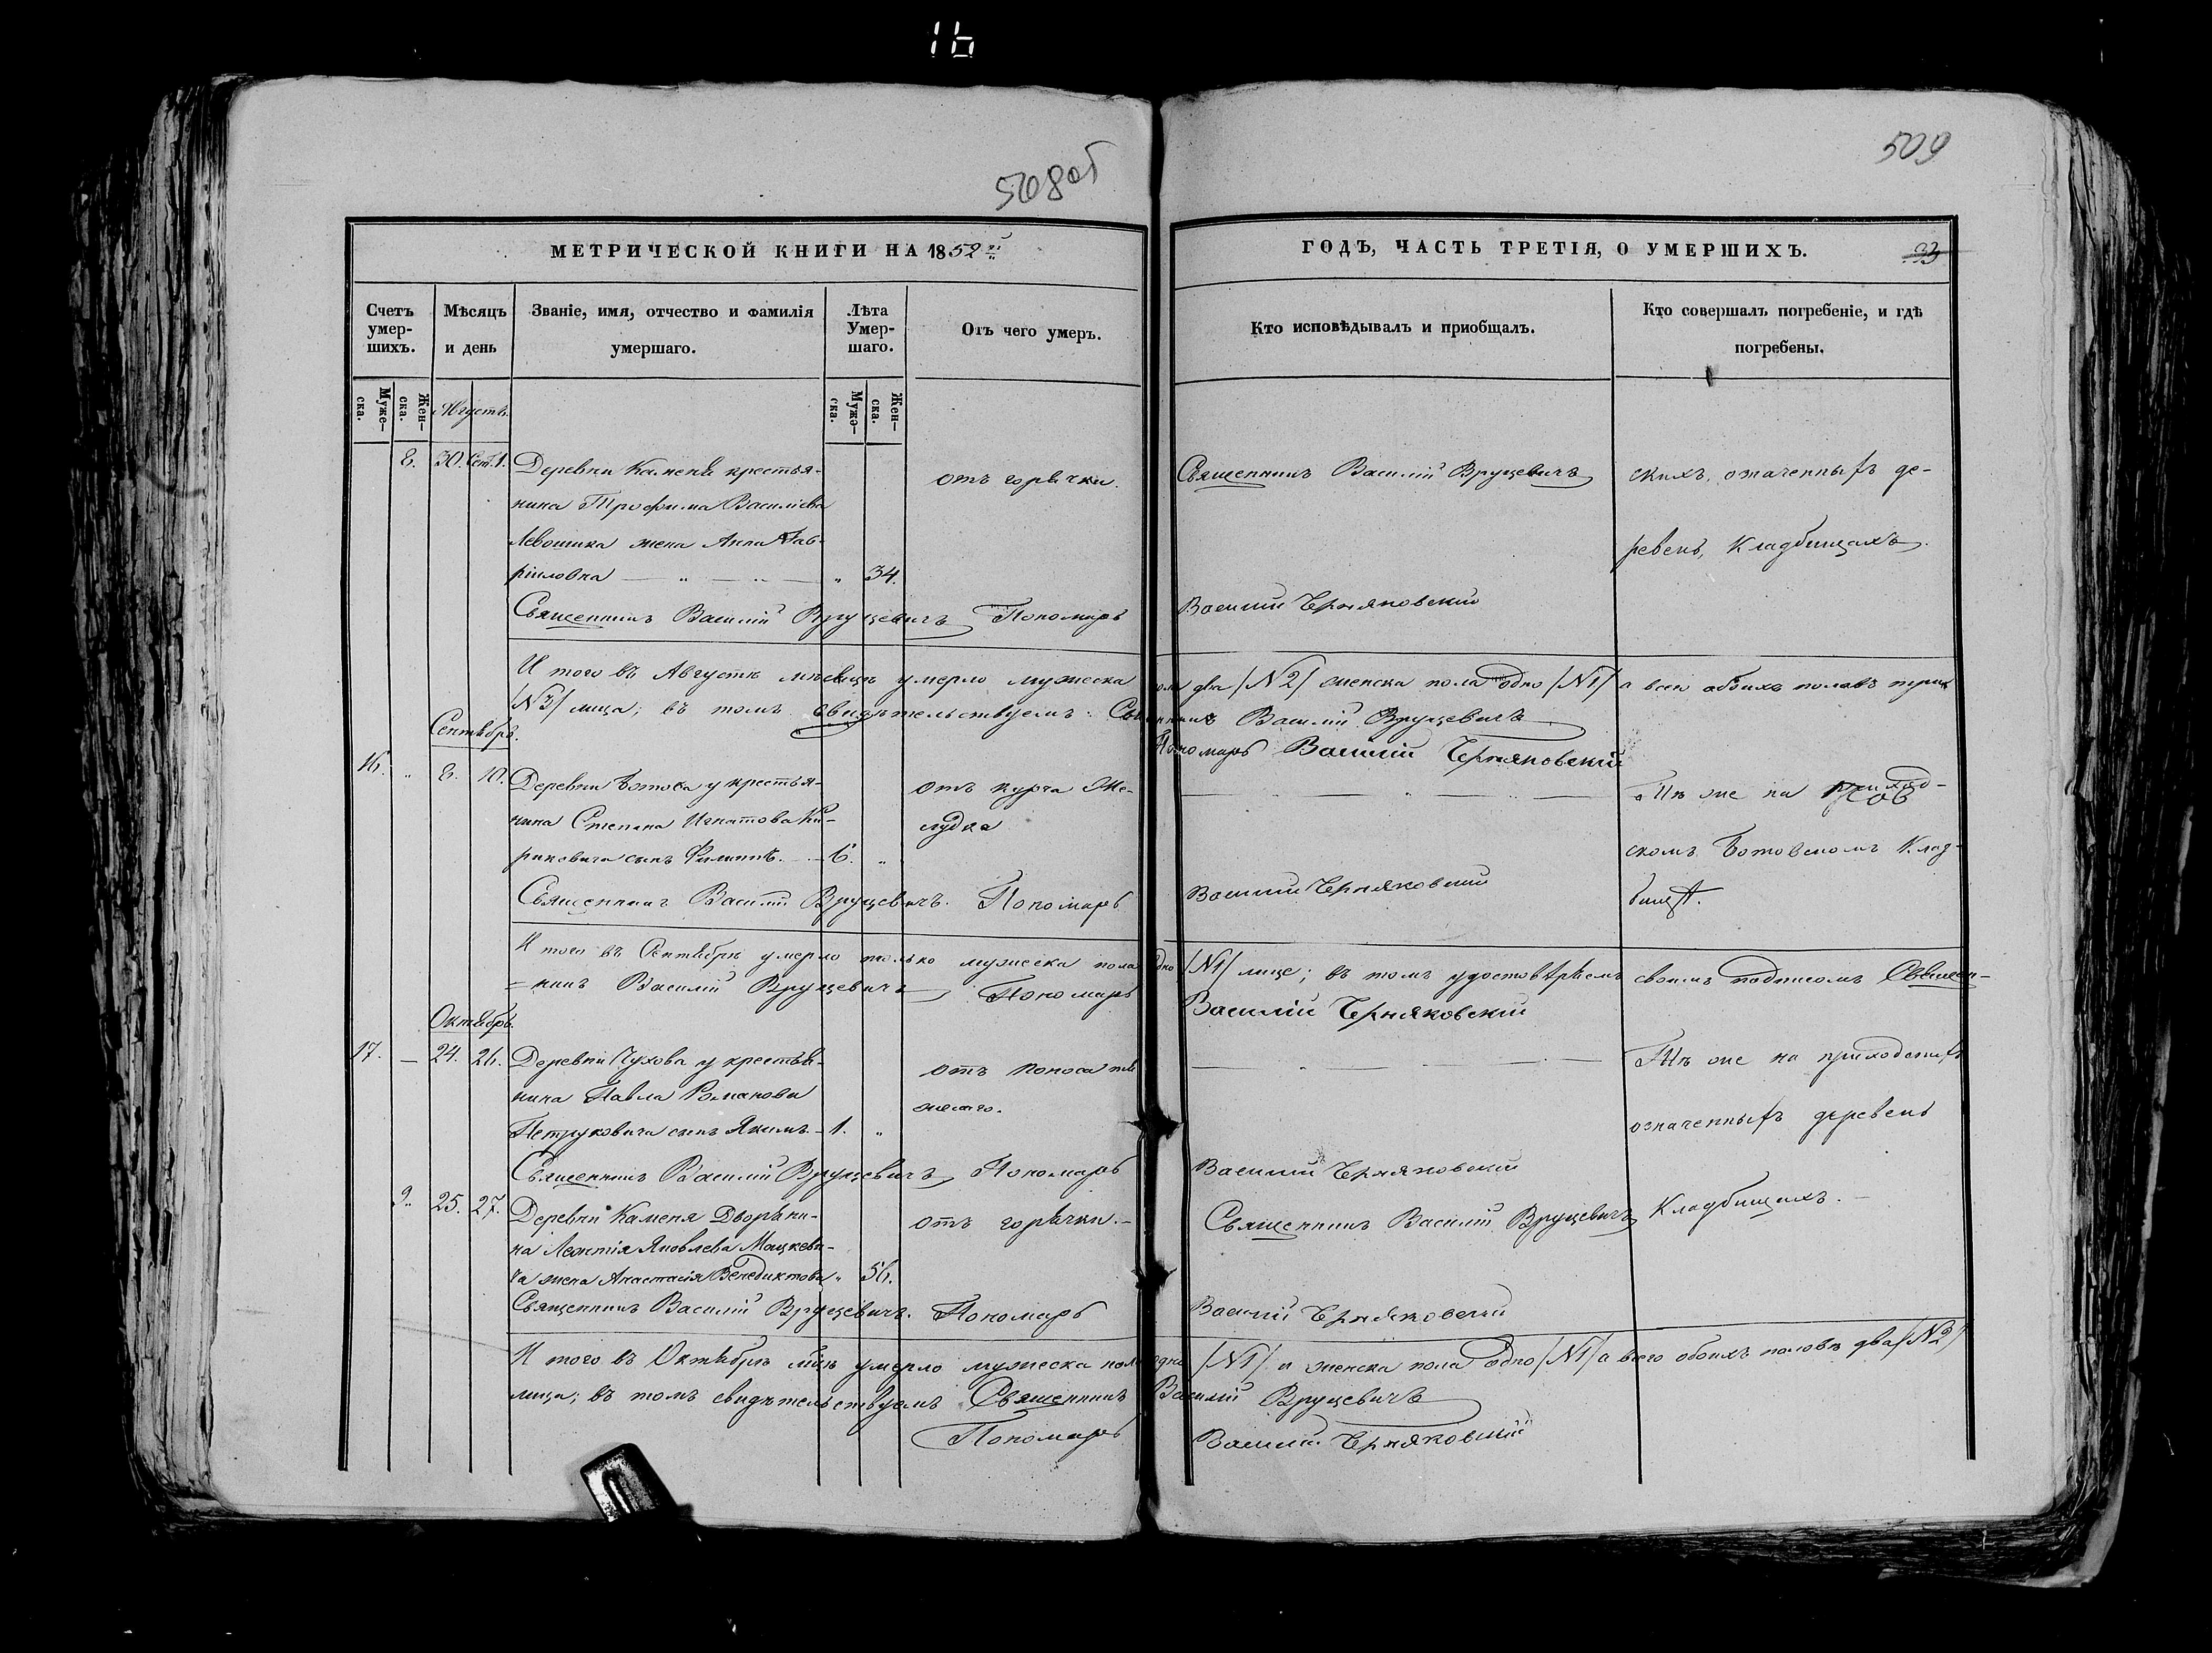 16
508об
509
МЕТРИЧЕСКОЙ КНИГИ НА 1852й
ГОДЪ, ЧАСТЬ ТРЕТІЯ, О УМЕРШИХЪ.
33
Счетъ умер-шихъ.
Мѣсяцъ и день
Званіе, имя, отчество и фамилія умершаго.
Лѣта Умер-шаго.
Отъ чего умеръ.
Кто исповѣдывалъ и приобщалъ.
Кто совершалъ погребеніе, и гдѣ погребены.
Муже-ска.
Жен-ска.
Муже-ска.
Жен-ска.
Августъ.
8. 30. Сен. 1. Деревни Каменя крестья-
нина Трофима Василіева
Левошика жена Анна Гав-
ріиловна — „ — „ — „ 34.
отъ горячки.
Священникъ Василій Вруцевичъ
скихъ, означенныхъ де-
ревень, Кладбищахъ.
Священникъ Василій Вруцевичъ Пономарь Василій Черняковскій
И того въ Августѣ мѣсяцѣ умерло мужеска пола два /№2/ женска пола одно /№1/ а всего обоихъ половъ три
/№3/ лица; въ томъ свидѣтельствуемъ: Священникъ Василій Вруцевичъ
Пономарь Василій Черняковскій
Сентябрь.
16. „ 8. 10. Деревни Ботова у крестья-
нина Степана Игнатова Ки-
риковича сынъ Филиппъ. — 6. „
отъ курча Же-
лудка
Тѣ же на приход-
скомъ Ботовскомъ Клад-
бищѣ.
Священникъ Василій Вруцевичъ. Пономарь Василій Черняковскій
И того въ Сентябрѣ умерло только мужеска пола одно /№1/ лице; въ томъ удостовѣряемъ своимъ подписомъ Священ-
=никъ Василій Вруцевичъ Пономарь Василій Черняковскій
Октябрь.
17. — 24. 26. Деревни Чухова у крестья-
нина Павла Романова
Петруковича сынъ Якимъ. — 1. „
отъ поноса тя
желаго.
Тѣ же на приходскихъ
означенныхъ деревень
Кладбищахъ. —
Священникъ Василій Вруцевичъ Пономарь Василій Черняковскій
9. 25. 27. Деревни Каменя Дворяни-
на Леонтія Яковлева Мацкеви-
ча жена Анастасія Венедиктова „ 56.
отъ горячки. —
Священникъ Василій Вруцевичъ
Священникъ Василій Вруцевичъ. Пономарь Василій Черняковскій
И того въ Октябрѣ мцѣ умерло мужеска пола одно /№1/ и женска пола одно /№1/ а всего обоихъ половъ два /№2/
лица; въ томъ свидѣтельствуемъ Священникъ Василій Вруцевичъ
Пономарь Василій Черняковскій